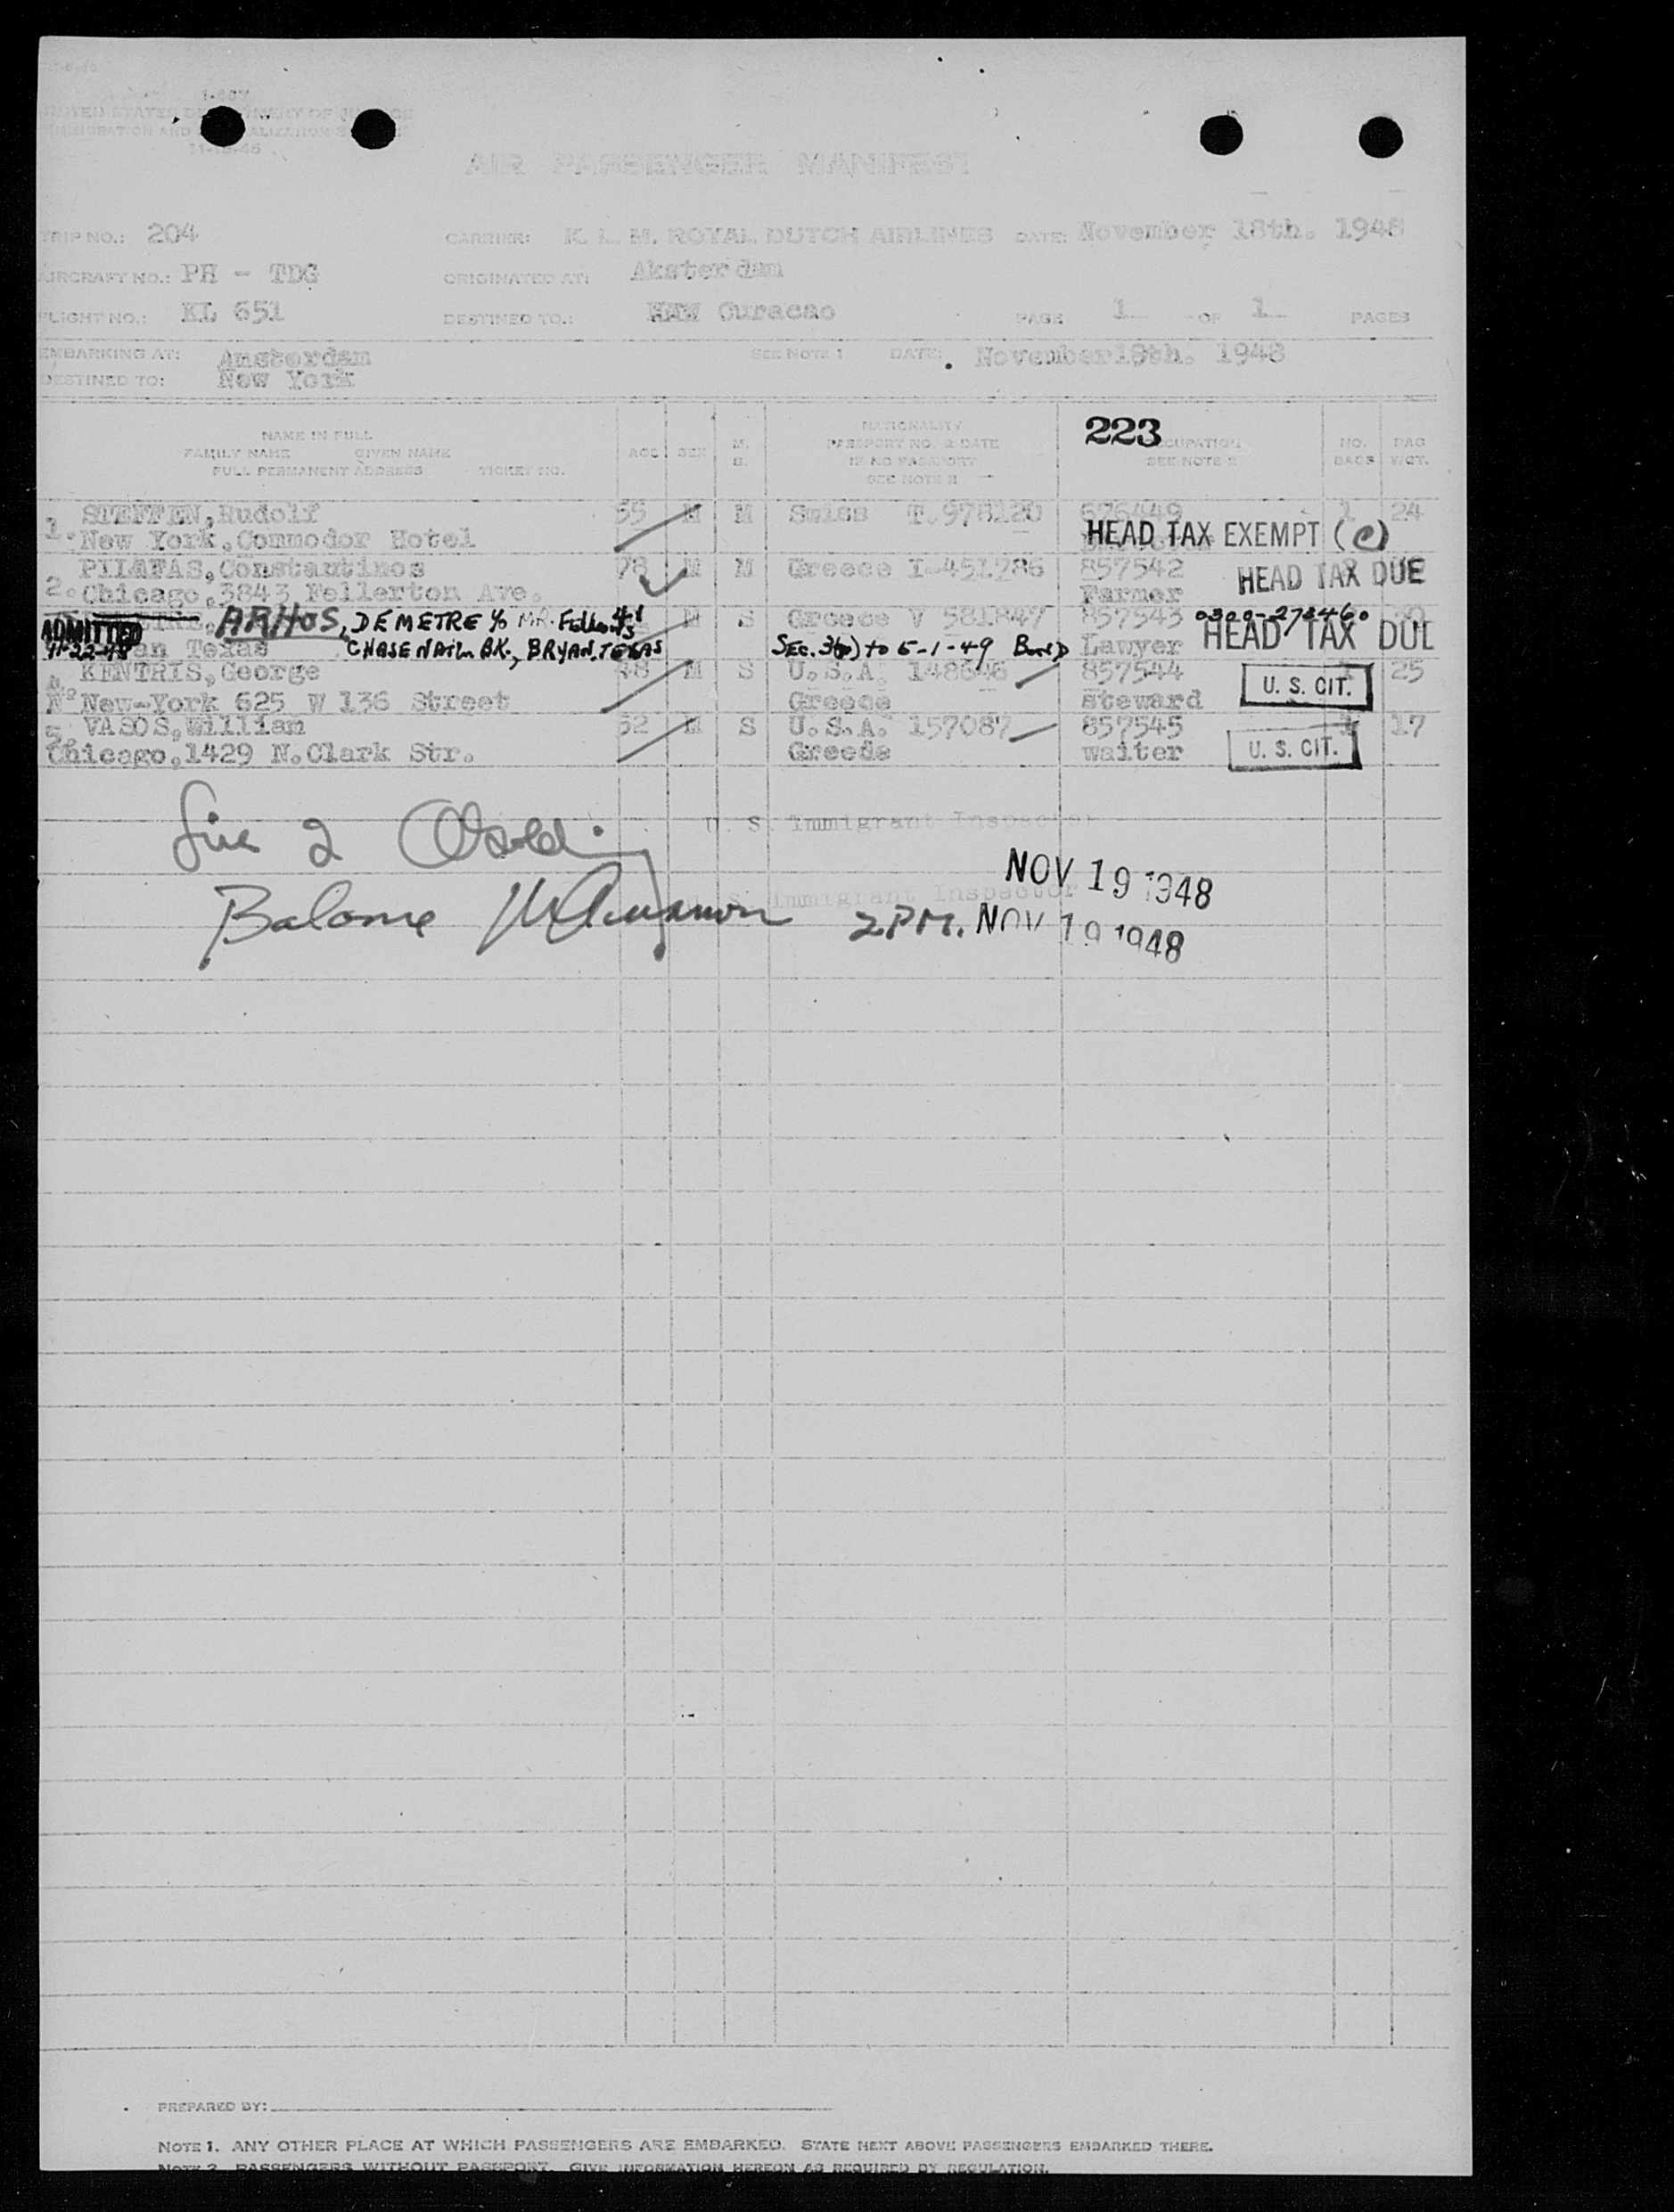 I-407
UNITED STATES DEPARTMENT OF JUSTICE
IMMIGRATION AND NATURALIZATION SERVICE
AIR PASSENGER MANIFEST
TRIP NO.: 204 CARRIER: K. L. M. ROYAL DUTCH AIRLINES DATE: November 18th. 1948
AIRCRAFT NO.: PH - TDG ORIGINATED AT: Aksterdam
FLIGHT NO.: KL 651 DESTINED TO.: Curacao PAGE 1 OF 1 PAGES
EMBARKING AT: Amsterdam SEE NOTE 1 DATE: November 18th. 1948
DESTINED TO: New York
223
NAME IN FULL
FAMILY NAME GIVEN NAME
FULL PERMANENT ADDRESS TICKET NO.
AGE SEX M. S.
NATIONALITY
PASSPORT NO. & DATE
IF NO PASSPORT
SEE NOTE 2
OCCUPATION
SEE NOTE 2
NO. BAGS
BAG WGT.
1. STEFFEN, Rudolf 55 M M Swiss T.978120 676449 1 24
New York, Commodor Hotel HEAD TAX EXEMPT (C)
2. PILAFAS, Constantinos 78 M M Greece I-451786 857542 HEAD TAX DUE
Chicago, 3843 Fellerton Ave. Farmer
ARHOS, DEMETRE % MR. 41 M S Greece V 581847 857543 0300-273460
ADMITTED 11-22-48 Texas CHASE NAT'L BK., BRYAN, TEXAS SEC. 3(2) to 5-1-49 Bond Lawyer HEAD TAX DUE
4. KENTRIS, George 48 M S U.S.A. 148646 857544 U. S. CIT. 25
New-York 625 W 136 Street Greece Steward
5. VASOS, William 52 M S U.S.A. 157087 857545 1 17
Chicago, 1429 N. Clark Str. Greede waiter U. S. CIT.
Line 2
U. S. Immigrant Inspector
NOV 19 1948
Balance
U. S. Immigrant Inspector
2 PM. NOV 19 1948
PREPARED BY:
NOTE 1. ANY OTHER PLACE AT WHICH PASSENGERS ARE EMBARKED. STATE NEXT ABOVE PASSENGERS EMBARKED THERE.
NOTE 2. PASSENGERS WITHOUT PASSPORT. GIVE INFORMATION HEREON AS REQUIRED BY REGULATION.